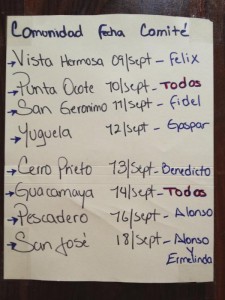 Comunidad Fecha Comité
→Vista Hermosa 09/Sept - Felix
→Punta Ocote 10/Sept - Todos
→San Geronimo 11/Sept - Fidel
→Yuguela 12/Sept - Gaspar
→Cerro Prieto 13/Sept - Benedicto
→Guacamaya 14/Sept - Todos
→Pescadero 16/Sept - Alonso
→San José 18/Sept - Alonso
y
Ermelinda